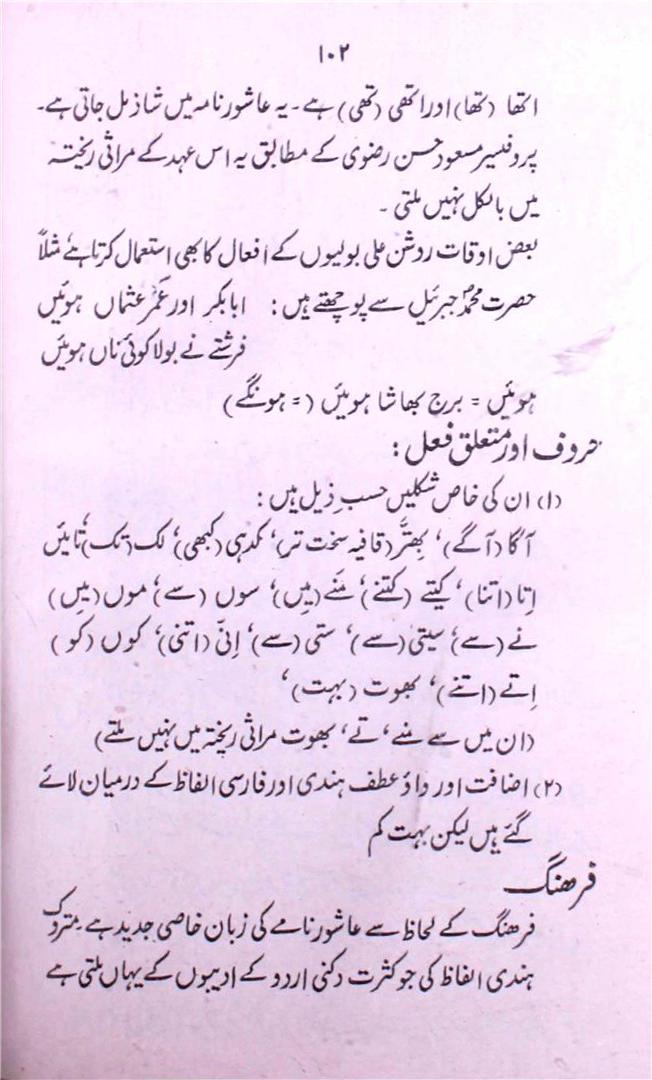 ۱۰۲
اتھا (تھا) اور اتھی (تھی) ہے۔ یہ عاشور نامہ میں شاذ مل جاتی ہے۔
پروفیسر مسعود حسن رضوی کے مطابق یہ اس عہد کے مراثی ریختہ
میں بالکل نہیں ملتی۔
بعض اوقات روشن علی بولیوں کے افعال کا بھی استعمال کرتا ہے مثلاً
حضرت محمدؐ جبرئیل سے پوچھتے ہیں: ابابکر اور عمر عثماں ہوئیں
فرشتے نے بولا کوئی ناں ہوئیں
ہوئیں = برج بھاشا ہوئیں (= ہونگے)
حروف اور متعلق فعل:
(۱) ان کی خاص شکلیں حسب ذیل ہیں:
آگا (آگے)، بھتّر (قافیہ سخت تر)، کدہی (کبھی)، لک (تک)، تائیں
اِتا (اتنا)، کیتے (کتنے)، منے (میں)، سوں (سے)، موں (میں)
نے (سے)، سیتی (سے)، ستی (سے)، اِتّی (اتنی)، کوں (کو)
اِتے (اتنے)، بھوت (بہت)،
(ان میں سے منے، تے، بھوت مراثی ریختہ میں نہیں ملتے)
(۲) اضافت اور واؤ عطف ہندی اور فارسی الفاظ کے درمیان لائے
گئے ہیں لیکن بہت کم
فرھنگ
فرھنگ کے لحاظ سے عاشور نامے کی زبان خاصی جدید ہے۔ متروک
ہندی الفاظ کی جو کثرت دکنی اردو کے ادیبوں کے یہاں ملتی ہے